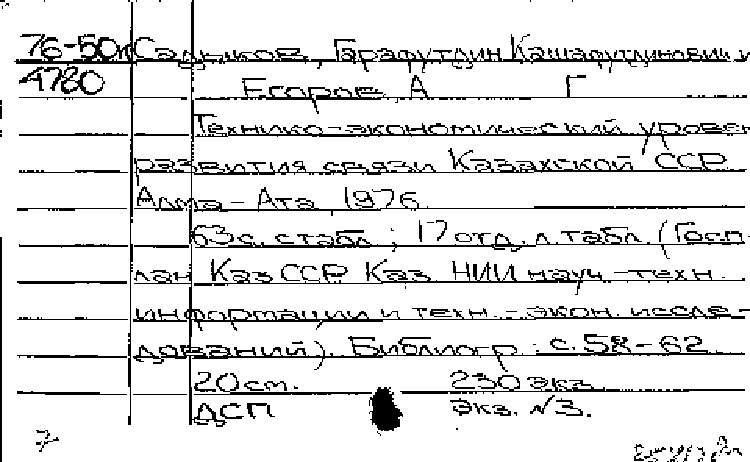 76-50к Садыков, Гарафутдин Кашафутдинович и
4780 Егоров А Г
Технико-экономический уровен
развития связи Казахской ССР
Алма-Ата, 1976.
63с. с табл.; 17 отд. л. табл. (Госп-
лан КазССР Каз НИИ науч.-техн.
информации и техн.-экон. иссле-
дований). Библиогр.: с. 58-62
20 см. 230 экз.
ДСП Экз. №3.